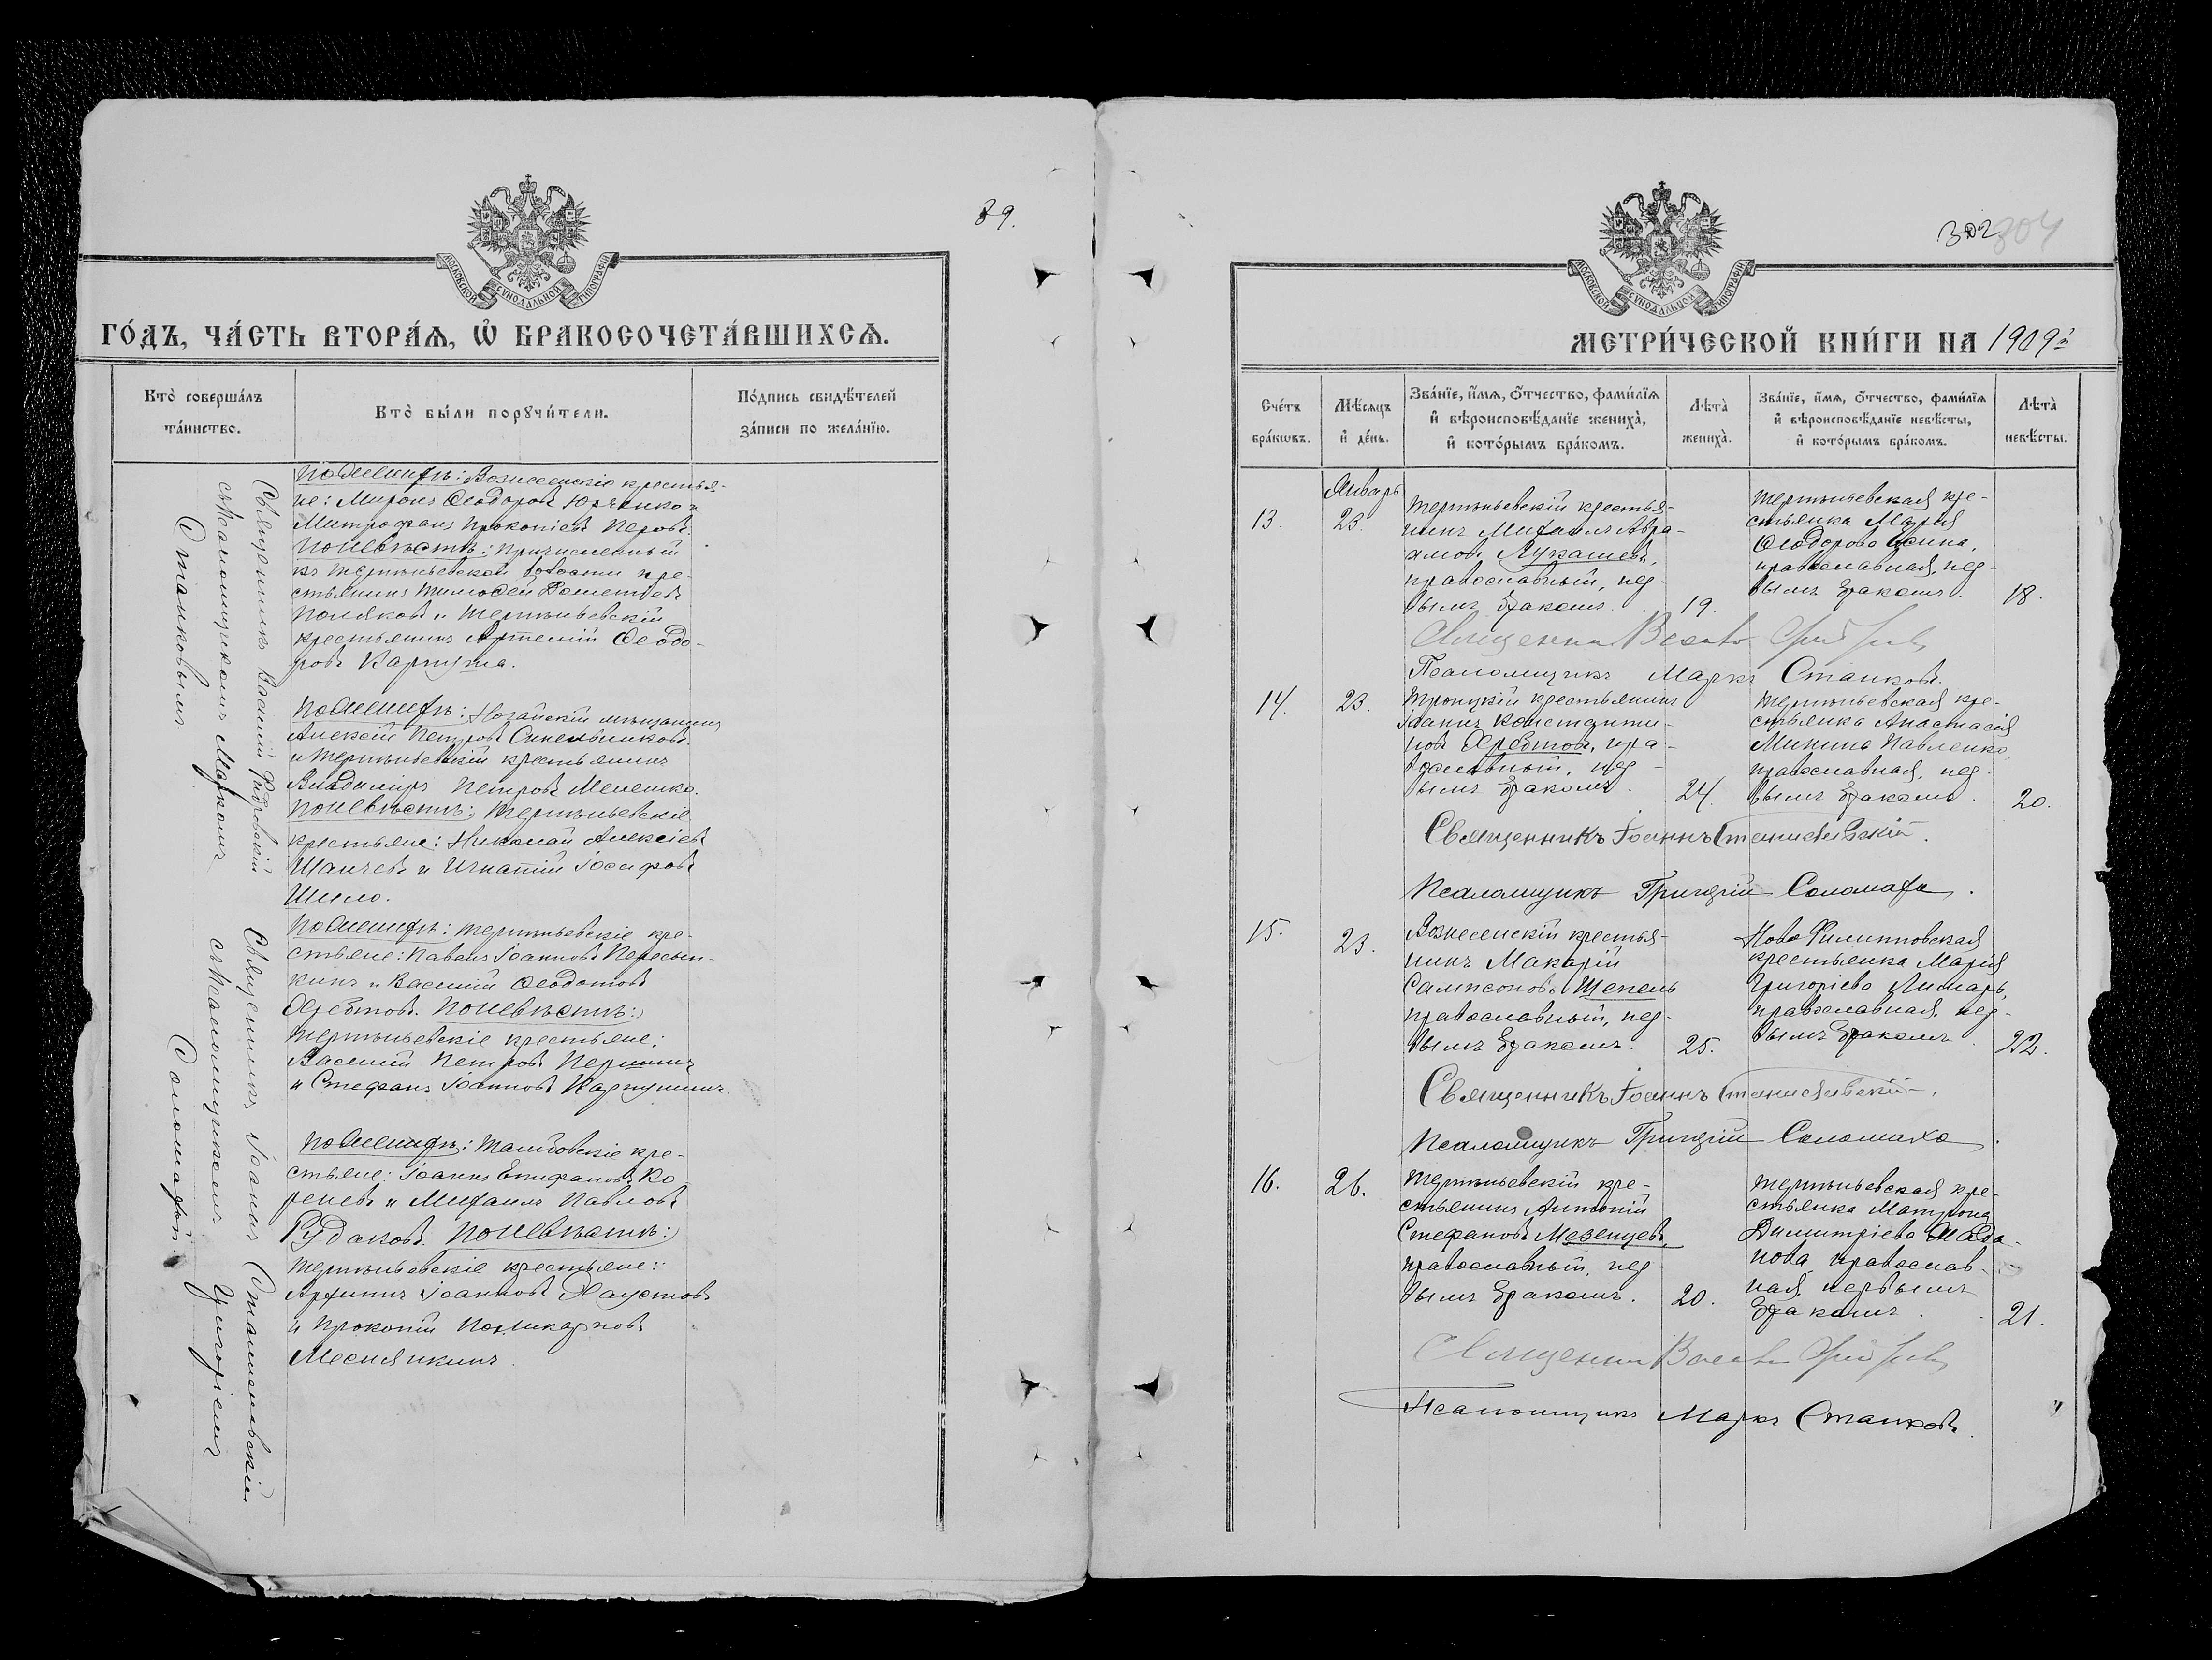 89.
МОСКОВСКОЙ СѴНОДАЛЬНОЙ ТИПОГРАФІИ
ГО́ДЪ, ЧА́СТЬ ВТОРА́Ѧ, Ѽ БРАКОСОЧЕТА́ВШИХСѦ.
Кто̀ соверша́лъ
та́инство.
Кто̀ бы́ли порꙋчи́тели.
По́дпись свидѣ́телей
за́писи по жела́нїю.
Священникъ Василій
съ псаломщикомъ Маркомъ
Станковымъ.
По женихѣ: Вознесенскіе крестья-
не: Миронъ Ѳеодоровъ Юрченко и
Митрофанъ Прокопіевъ Перовъ.
По невѣстѣ: причисленный
къ Терпѣньевской волости кре-
стьянинъ Тимоѳей Дементьевъ
Поляковъ и Терпѣньевскій
крестьянинъ Артемій Ѳеодо-
ровъ Карпуша.
По женихѣ: Ногайскій мѣщанинъ
Алексѣй Петровъ Синельниковъ
и Терпѣньевскій крестьянинъ
Владиміръ Петровъ Мелешко.
По невѣстѣ: Терпѣньевскіе
крестьяне: Николай Алексіевъ
Шанчевъ и Игнатій Іосифовъ
Шило.
Священникъ Іоаннъ Станиславскій
съ псаломщикомъ Григоріемъ
Соломахой.
По женихѣ: Терпѣньевскіе кре-
стьяне: Павелъ Іоанновъ Пересып-
кинъ и Василій Ѳеодотовъ
Хребтовъ. По невѣстѣ:
Терпѣньевскіе крестьяне:
Василій Петровъ Першинъ
и Стефанъ Іоанновъ Карпушинъ.
По женихѣ: Тамбовскіе кре-
стьяне: Іоаннъ Епифановъ Ко-
реневъ и Михаилъ Павловъ
Рудаковъ. По невѣстѣ:
Терпѣньевскіе крестьяне:
Архипъ Іоанновъ Хаустовъ
и Прокопій Поликарповъ
Меснянкинъ.
302 304
МОСКОВСКОЙ СѴНОДАЛЬНОЙ ТИПОГРАФІИ
МЕТРИ́ЧЕСКОЙ КНИ́ГИ НА 1909й
Сче́тъ
бра́кѡвъ.
Мѣ́сѧцъ
и҆ де́нь.
Зва́нїе, и҆́мѧ, ѻ҆́тчество, фами́лїѧ
и҆ вѣроисповѣ́данїе жениха̀,
и҆ кото́рымъ бра́комъ.
Лѣ́та̀
жениха̀.
Зва́нїе, и҆́мѧ, ѻ҆́тчество, фами́лїѧ
и҆ вѣроисповѣ́данїе невѣ́сты,
и҆ кото́рымъ бра́комъ.
Лѣ́та̀
невѣ́сты.
Январь
13.
23.
Терпѣньевскій крестья-
нинъ Михаилъ Авра-
амовъ Лукашевъ,
православный, пер-
вымъ бракомъ.
19.
Терпѣньевская кре-
стьянка Марія
Ѳеодорова
православная, пер-
вымъ бракомъ.
18.
Священникъ
Псаломщикъ Маркъ Станковъ.
14.
23.
Троицкій крестьянинъ
Іоаннъ Константи-
новъ Хребтовъ, пра-
вославный, пер-
вымъ бракомъ.
24.
Терпѣньевская кре-
стьянка Анастасія
Минина Павленко
православная, пер-
вымъ бракомъ.
20.
Священникъ Іоаннъ Станиславскій.
Псаломщикъ Григорій Соломаха.
15.
23.
Вознесенскій крестья-
нинъ Макарій
Сампсоновъ Шепель
православный, пер-
вымъ бракомъ.
25.
Ново Филипповская
крестьянка Марія
Григоріева Лимарь,
православная, пер-
вымъ бракомъ.
22.
Священникъ Іоаннъ Станиславскій.
Псаломщикъ Григорій Соломаха.
16.
26.
Терпѣньевскій кре-
стьянинъ Антоній
Стефановъ Мезенцевъ,
православный, пер-
вымъ бракомъ.
20.
Терпѣньевская кре-
стьянка Матрона
Димитріева
православ-
ная, первымъ
бракомъ.
21.
Священникъ
Псаломщикъ Маркъ Станковъ.